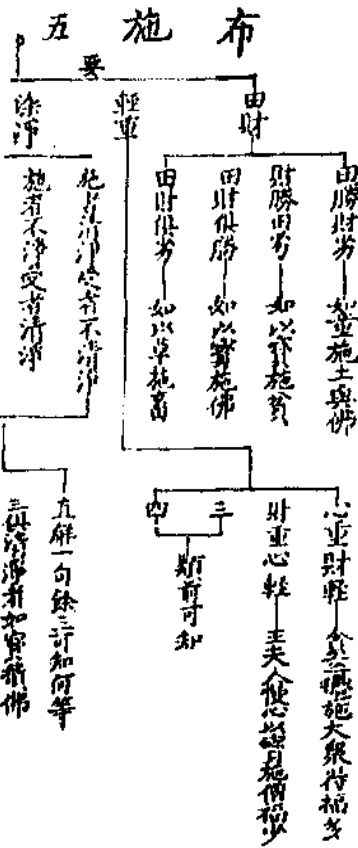 布施五
要
田財
田勝財劣——如童施土與佛
財勝田劣——如以寶施貧
田財俱勝——如以寶施佛
田財俱劣——如以草施畜
輕重
心重財輕——貧女施大眾得福多
財重心輕——王夫人慢心以施僧福少
三
四
類前可知
染淨
施者清淨受者不清淨
施者不淨受者清淨
直解一句餘三可知何等
三俱清淨者如寶積佛